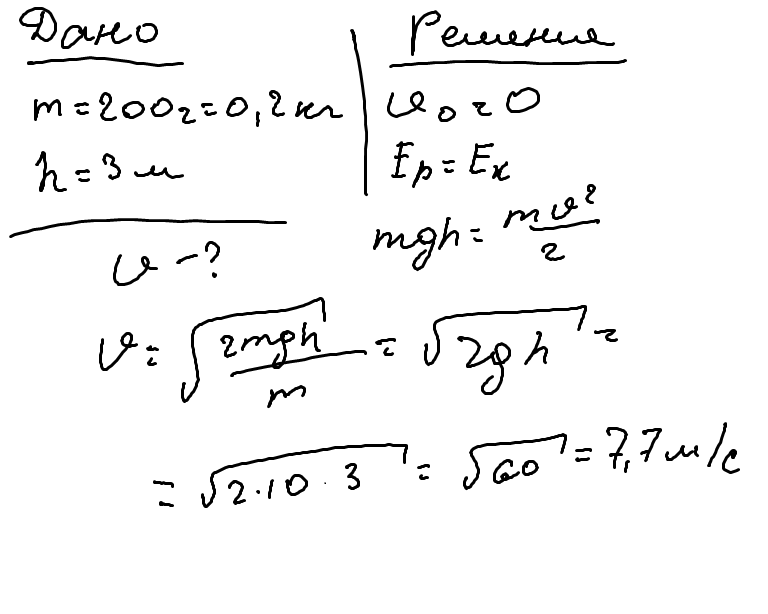 Дано
m = 200 г = 0,2 кг
h = 3 м
υ - ?
Решение
υ₀ = 0
Eₚ = Eₖ
mgh = mυ²/2
υ = √(2mgh/m) = √(2gh) =
= √(2·10·3) = √60 = 7,7 м/с